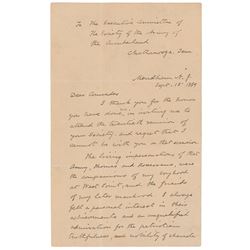 To The Executive Committee of
the Society of the Army of
the Cumberland
Chattanooga, Tenn
Mendham N. J.
Sept. 15th 1889
Dear Comrades
I thank you for the honor
you have done, in inviting me to
attend the twentieth reunion of
your Society, and regret that I
cannot be with you on that occasion
The living impersonations of that
Army, Thomas and Rosecrans were
the companions of my boyhood
at West Point, and the friends
of my later manhood. I always
felt a personal interest in their
achievements and an unqualified
admiration for the patriotism
faithfulness, and nobility of character